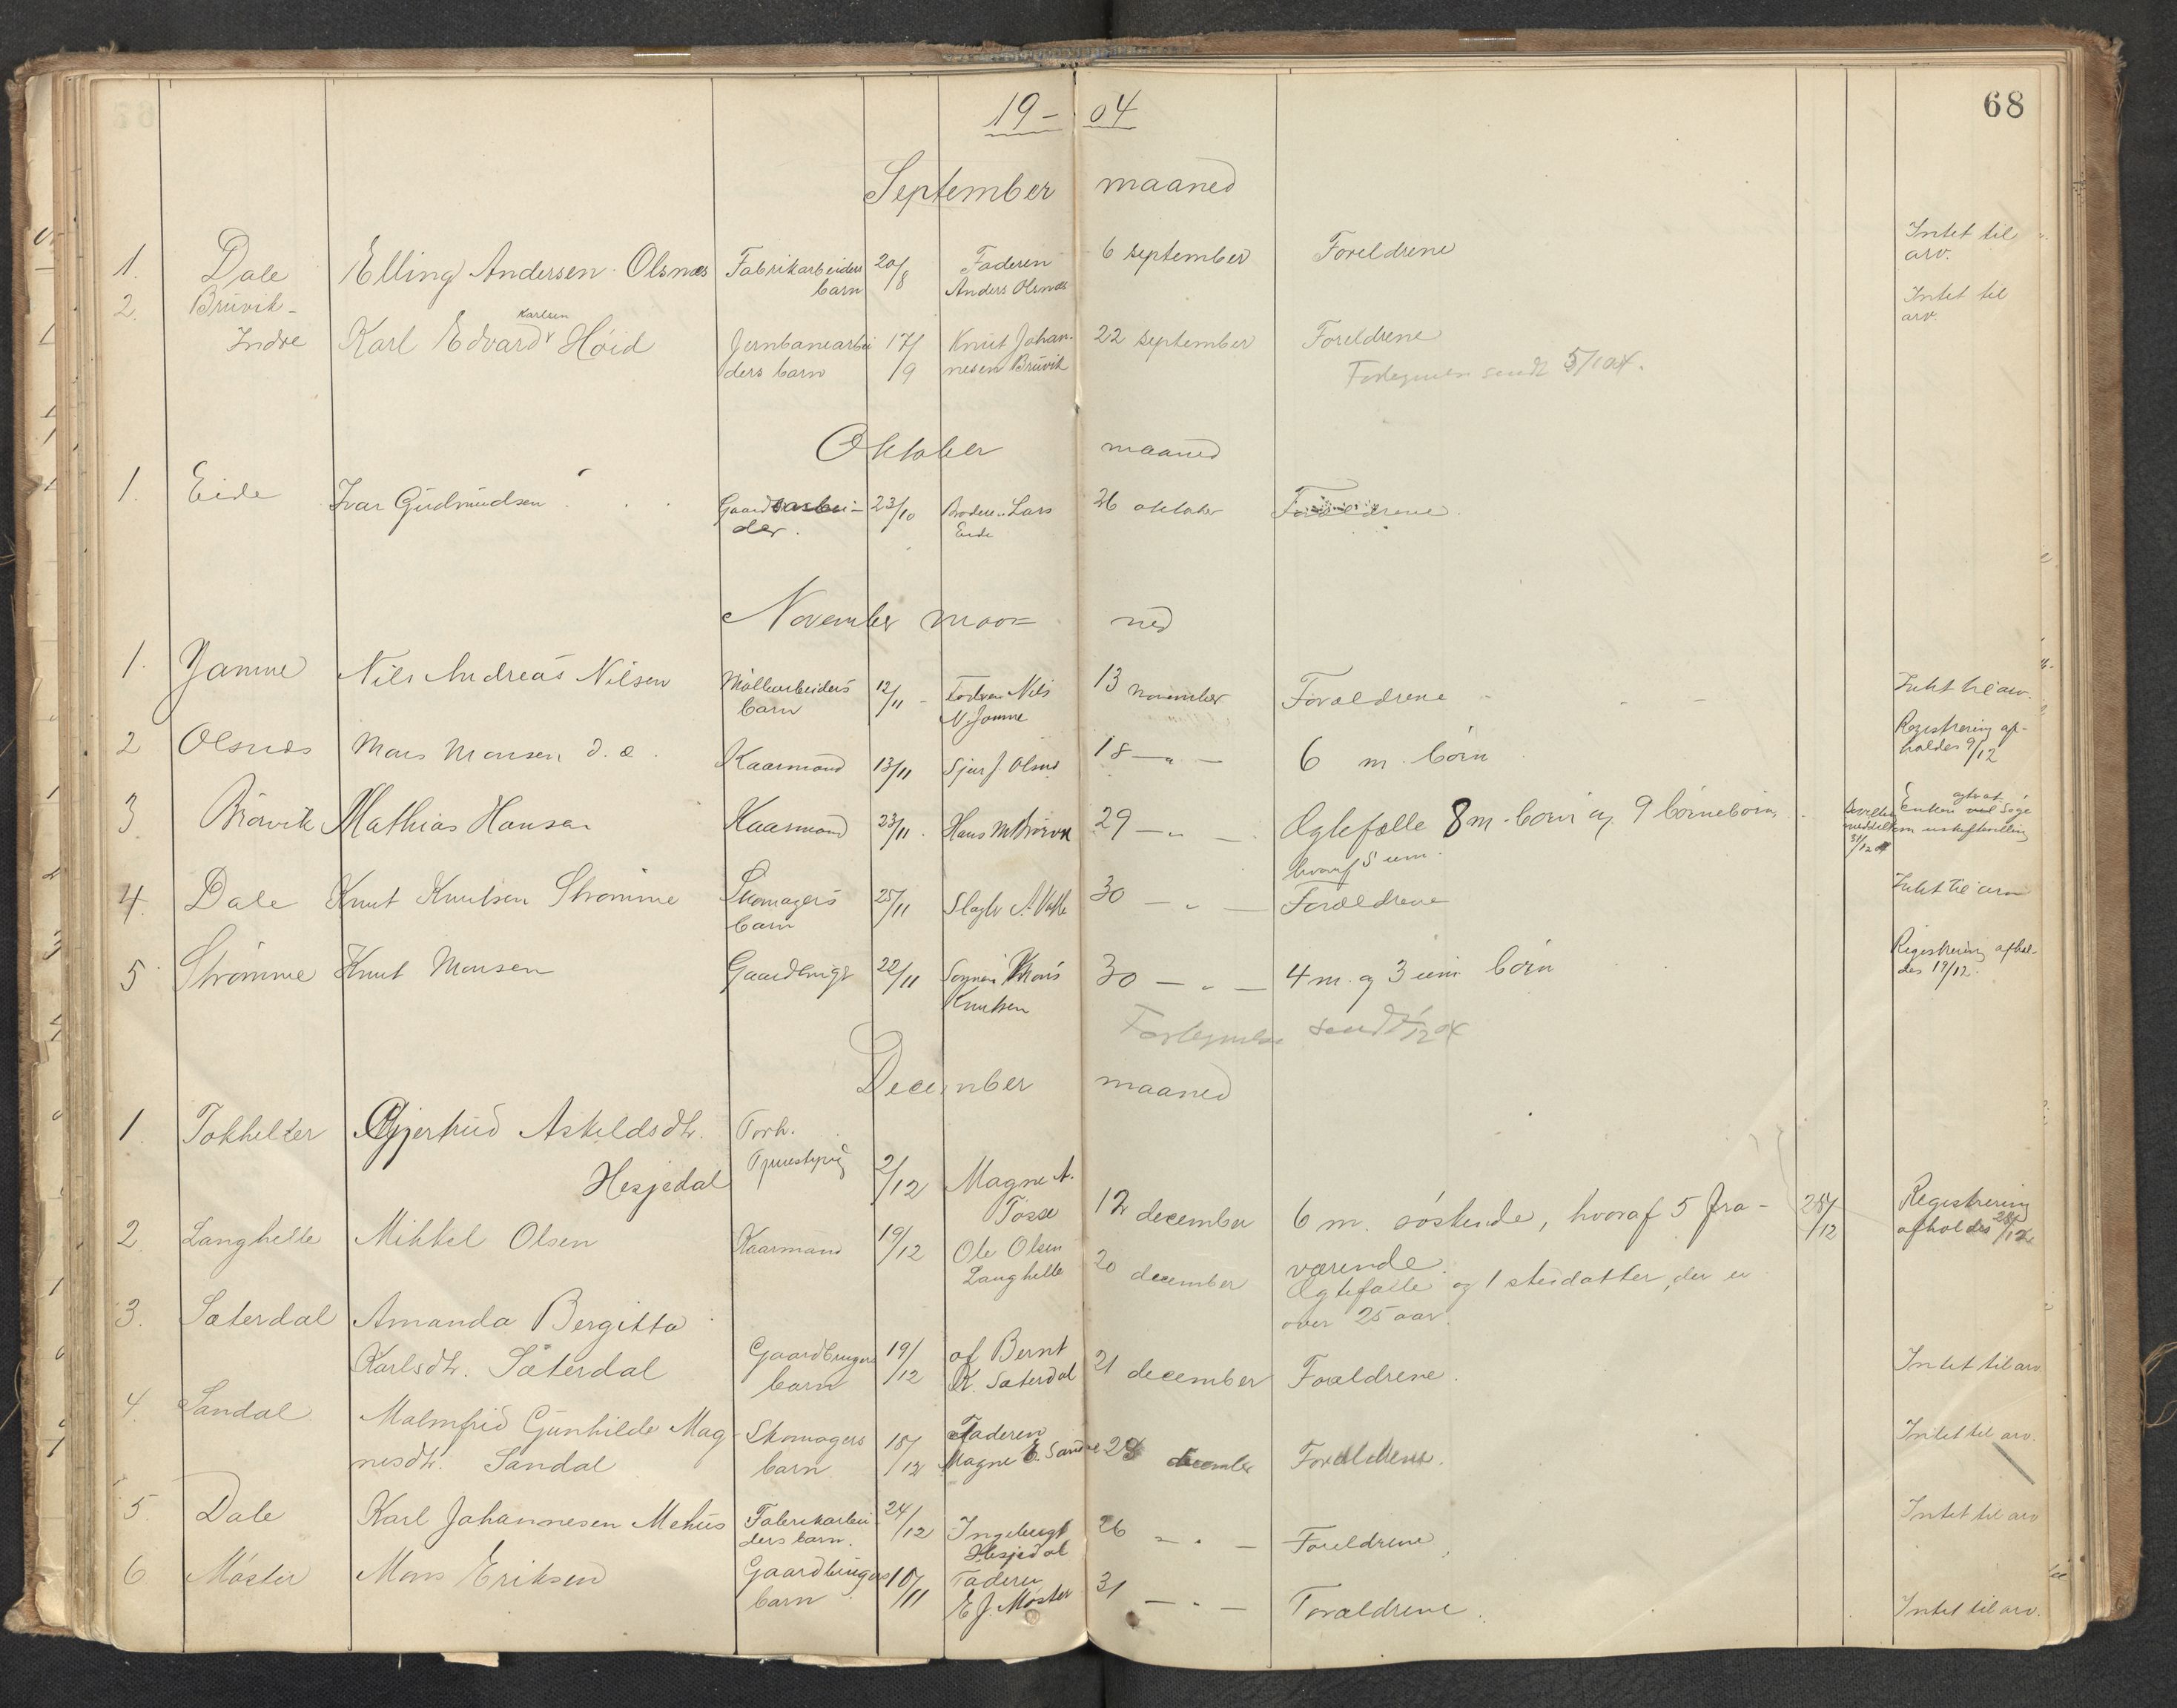 68
19- 04
September maaned
1. Dale Elling Andersen Olsnæs Fabrikarbeiders barn 20/8 Faderen Anders Olsnæs 6 september Foreldrene Intet til arv.
2. Bruvik-Indre Karl Edvard Karlsen Høid Jernbanearbeiders barn 17/9 Knut Johannesen Bruvik 22 september Foreldrene Intet til arv.
Fortegnelse sendt 5/10 04.
Oktober maaned
1. Eide Ivar Gudmundsen Gaardsarbeider. 23/10 Lars Eide 26 oktober Forældrene.
November maaned
1. Jamne Nils Andreas Nilsen barn 12/11 Nils N. Jamne 13 november Forældrene Intet til arv.
2 Olsnæs Mons Monsen d. æ. Kaarmand 13/11 Sjur J. Olsnæs 18 — " — 6 m. børn Registrering afholdes 9/12
3. Mathias Hansen Kaarmand 23/11. Hans M. 29 — " — Ægtefælle 8 m. børn og 9 børnebørn, hvoraf 5 um. Enken agtes at søge om uskiftebevilling meddelt 31/12 04
4. Dale Knut Knutsen Strømme Skomagers barn 25/11 A. 30 — " — Forældrene Intet til arv
5. Strømme Knut Monsen Gaardbruger 22/11 Sønnen Mons Knutsen 30 — " — 4 m. og 3 um. børn Registrering afholdes 19/12.
Fortegnelse sendt /12 04
December maaned
1. Tokheller Gjertrud Askeldsdtr. Hesjedal 2/12 Magne A. Fosse 12 december 6 m. søskende, hvoraf 5 fraværende. 28/12 Registrering afholdes 28/12
2 Langhelle Mikkel Olsen Kaarmand 19/12 Ole Olsen Langhelle 20 december Ægtefælle og 1 steddatter, der er over 25 aar.
3. Sæterdal Amanda Bergitta Karlsdtr. Sæterdal Gaardbrugers barn 19/12 af Bernt K. Sæterdal 21 december Forældrene. Intet til arv.
4. Sandal Malmfrid Gunhilde Magnesdtr. Sandal Skomagers barn 18/12 Faderen Magne E. Sandal december Forældrene. Intet til arv.
5. Dale Karl Johannesen Mehus Fabrikarbeiders barn. 24/12 Ingeborg Hesjedal 26 — " — Foreldrene Intet til arv
6 Møster Mons Eriksen Gaardbrugers barn 10/11 Faderen E. J. Møster 31 — " — Forældrene. Intet til arv.